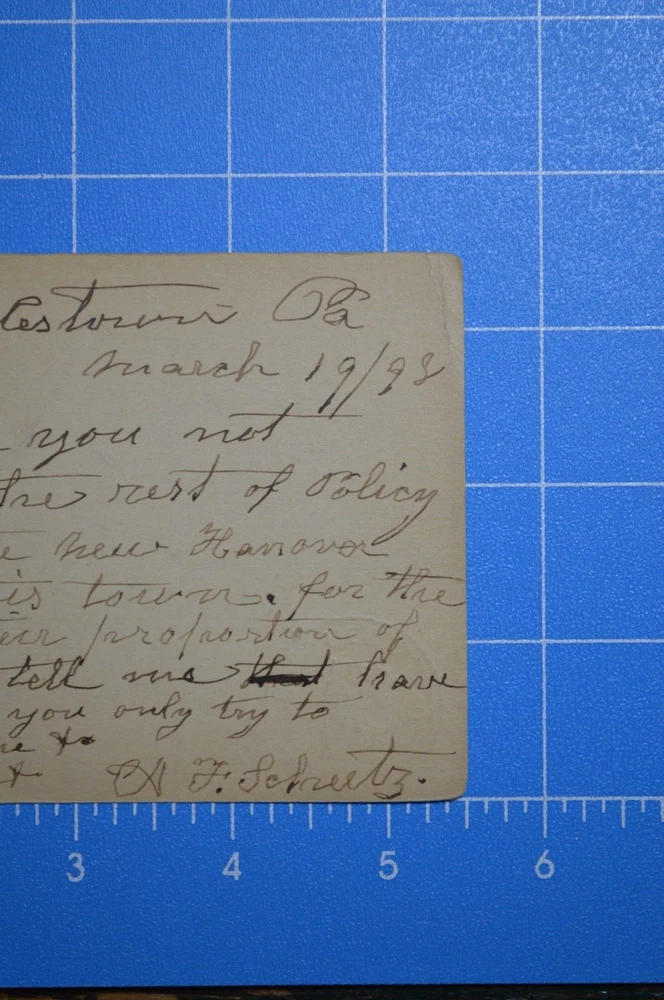 lestown Pa
March 19/98
you not
the rest of Policy
e New Hanover
is town. for the
eir proportion of
tell me that have
you only try to
ue to
t A F. Scheetz.
3 4 5 6